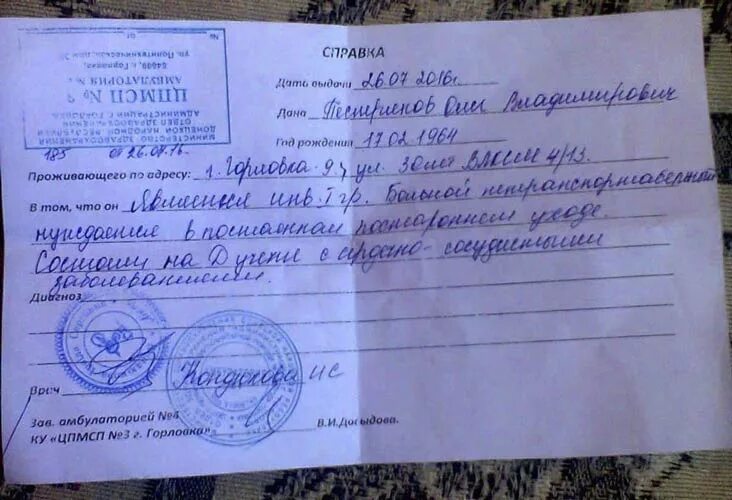 № от
МИНИСТЕРСТВО ЗДРАВООХРАНЕНИЯ
ДОНЕЦКОЙ НАРОДНОЙ РЕСПУБЛИКИ
ОТДЕЛ ЗДРАВООХРАНЕНИЯ
АДМИНИСТРАЦИИ Г. ГОРЛОВКА
ЦПМСП № 3
АМБУЛАТОРИЯ №
84609, г. Горловка,
ул. Политехническая,
185 от 26.07.16
СПРАВКА
Дата выдачи 26.07 2016г.
Дана Владимирович
Год рождения 17.02 1964
Проживающего по адресу: г. Горловка-9, ул. 4/13.
В том, что он Является инв. I гр. Больной нетранспортабельный
нуждается в постоянном постороннем уходе.
Состоит на Д учете с сердечно-сосудистыми
заболеваниями.
Диагноз
Врач
Зав. амбулаторией №4
КУ «ЦПМСП №3 г. Горловка» В.И.Давыдова.